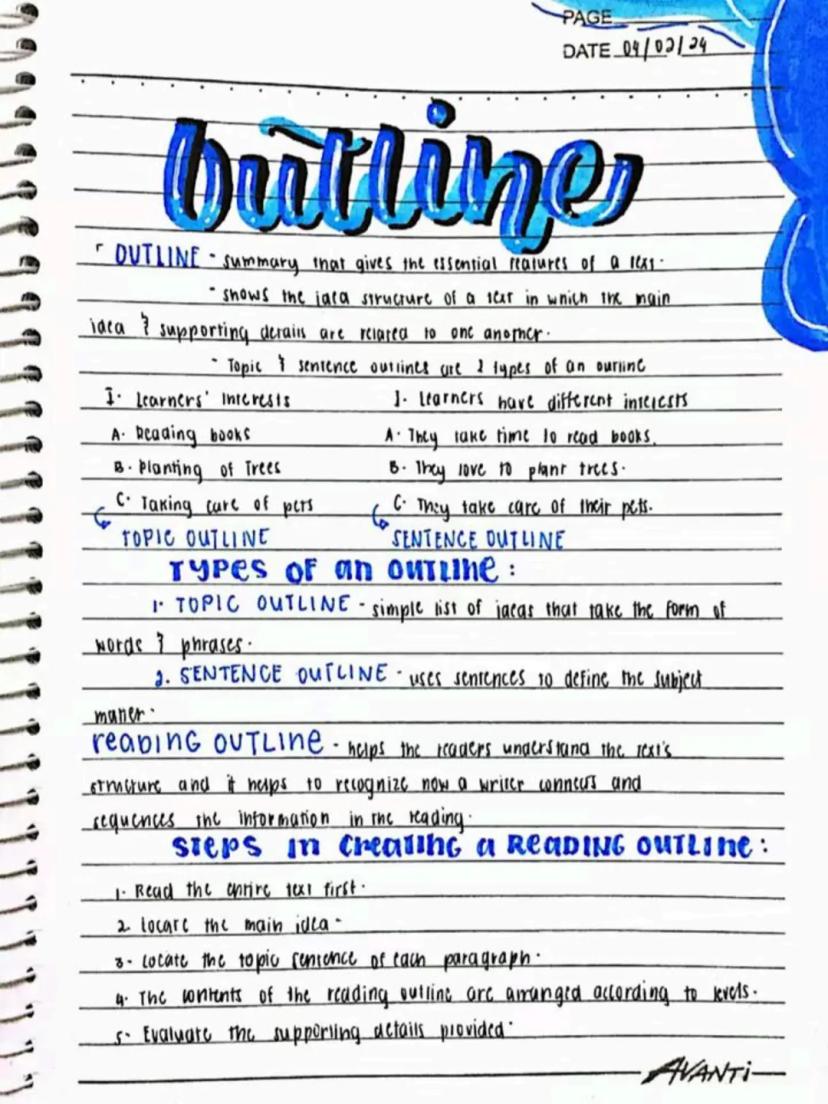 PAGE
DATE 04/02/24
Outline
OUTLINE - summary that gives the essential features of a text.
- shows the idea structure of a text in which the main
idea & supporting details are related to one another.
- Topic & sentence outlines are 2 types of an outline
I. Learners' Interests I. Learners have different interests
A. Reading books A. They take time to read books.
B. Planting of Trees B. They love to plant trees.
C. Taking care of pets C. They take care of their pets.
TOPIC OUTLINE SENTENCE OUTLINE
TYPES OF an OUTLINE:
1. TOPIC OUTLINE - simple list of ideas that take the form of
words & phrases.
2. SENTENCE OUTLINE - uses sentences to define the subject
matter.
reaDING OUTLINE - helps the readers understand the text's
structure and it helps to recognize how a writer connects and
sequences the information in the reading.
STEPS in Creating a READING OUTLINE:
1. Read the entire text first.
2. Locate the main idea.
3. Locate the topic sentence of each paragraph.
4. The contents of the reading outline are arranged according to levels.
5. Evaluate the supporting details provided.
AVANTi